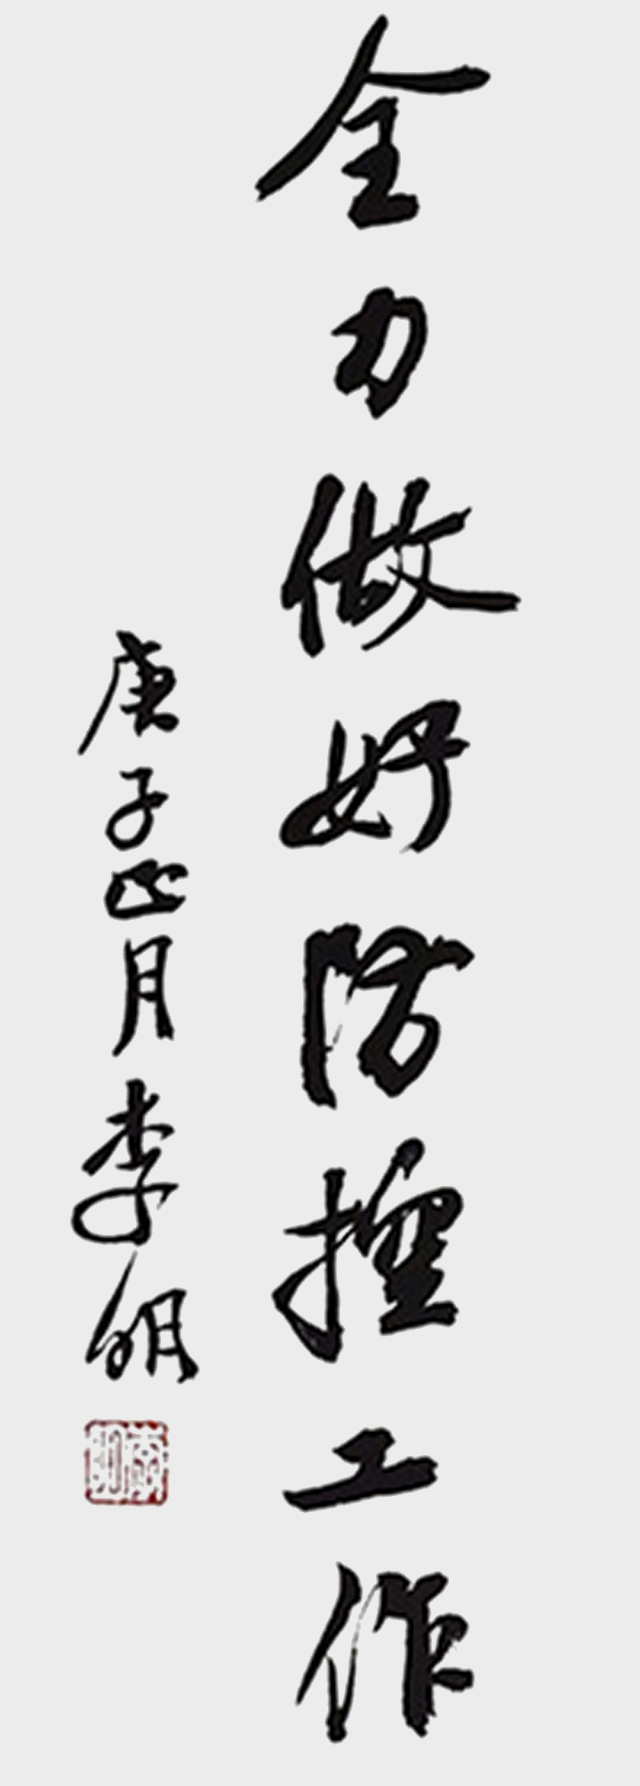 全力做好防控工作
庚子正月李明